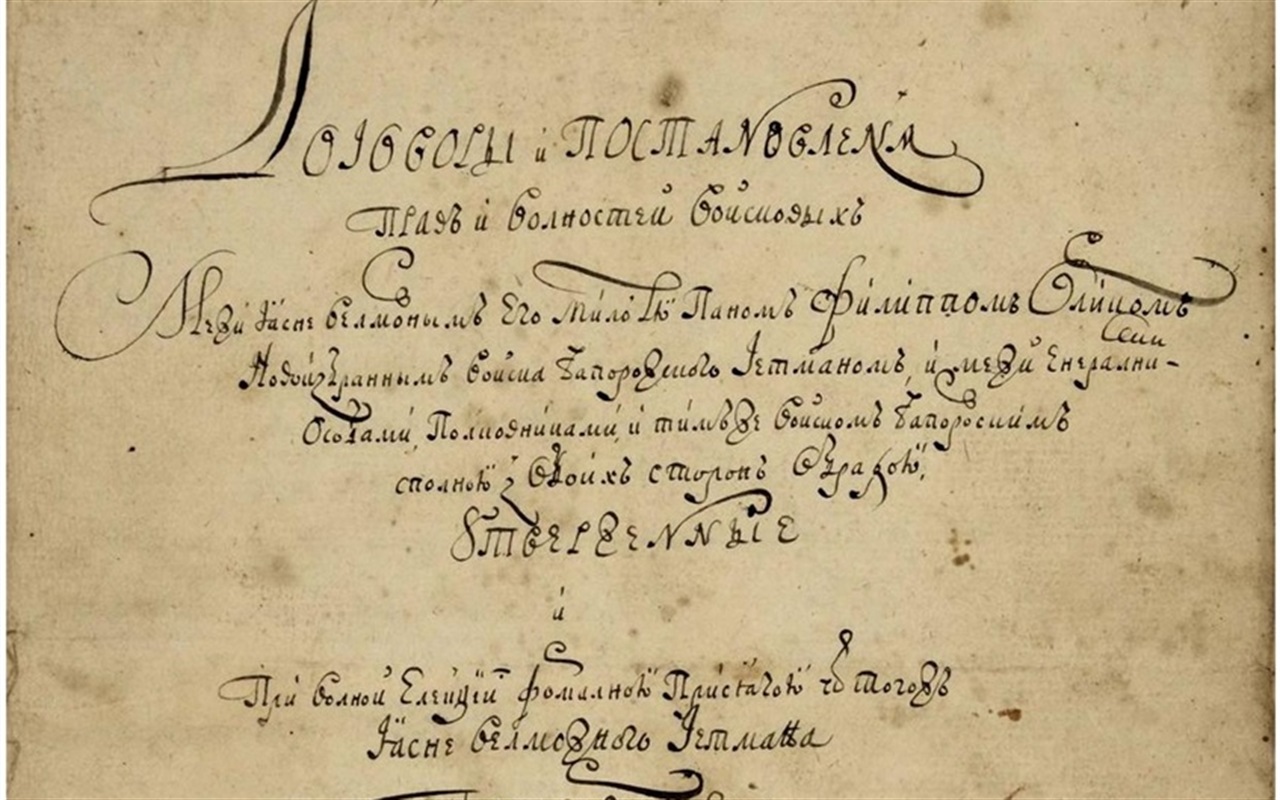 Договоры и ПОСТАНОВЛЕНѦ
Правъ и волностей Войсковыхъ
Межи Ӏасне велможнымъ Его Милостю Паномъ Филиппомъ Орликомъ
Новоизбраннымъ Войска Запорожского Гетманомъ, и межи Енерални-
Особами, Полковниками, и тимъже Войскомъ Запорожскимъ
сполною з обоихъ сторонъ Обрадою,
Ꙋтверженные
и
При волной Елекціи формалною Присягою ѿ тогожъ
Ӏасне велможного Гетмана